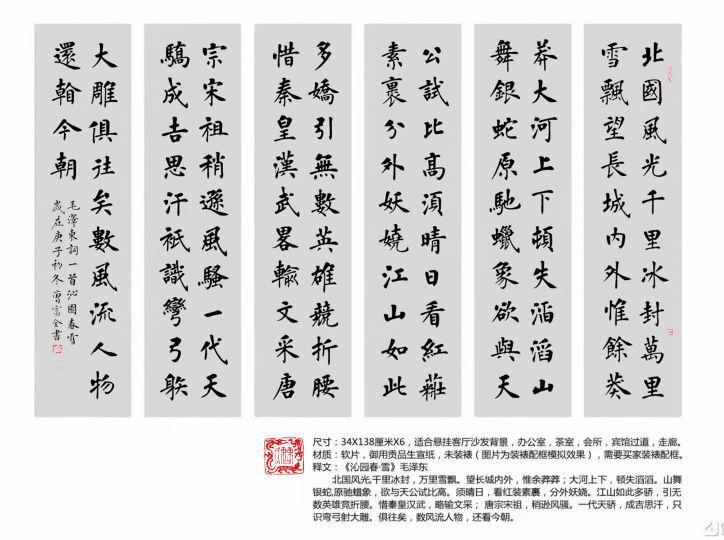 北國風光千里冰封萬里
雪飄望長城內外惟餘莽
莽大河上下頓失滔滔山
舞銀蛇原馳蠟象欲與天
公試比高須晴日看紅粧
素裹分外妖嬈江山如此
多嬌引無數英雄競折腰
惜秦皇漢武畧輸文采唐
宗宋祖稍遜風騷一代天
驕成吉思汗衹識彎弓射
大雕俱往矣數風流人物
還翰今朝
毛澤東詞一首沁園春雪
歲在庚子初冬曹富全書
尺寸：34X138厘米X6，适合悬挂客厅沙发背景，办公室，茶室，会所，宾馆过道，走廊。
材质：软片，御用贡品生宣纸，未装裱（图片为装裱配框模拟效果），需要买家装裱配框。
释文：《沁园春·雪》毛泽东
北国风光,千里冰封，万里雪飘。望长城内外，惟余莽莽；大河上下，顿失滔滔。山舞
银蛇,原驰蜡象，欲与天公试比高。须晴日，看红装素裹，分外妖娆。江山如此多骄，引无
数英雄竞折腰。惜秦皇汉武，略输文采；唐宗宋祖，稍逊风骚。一代天骄，成吉思汗，只
识弯弓射大雕。俱往矣，数风流人物，还看今朝。